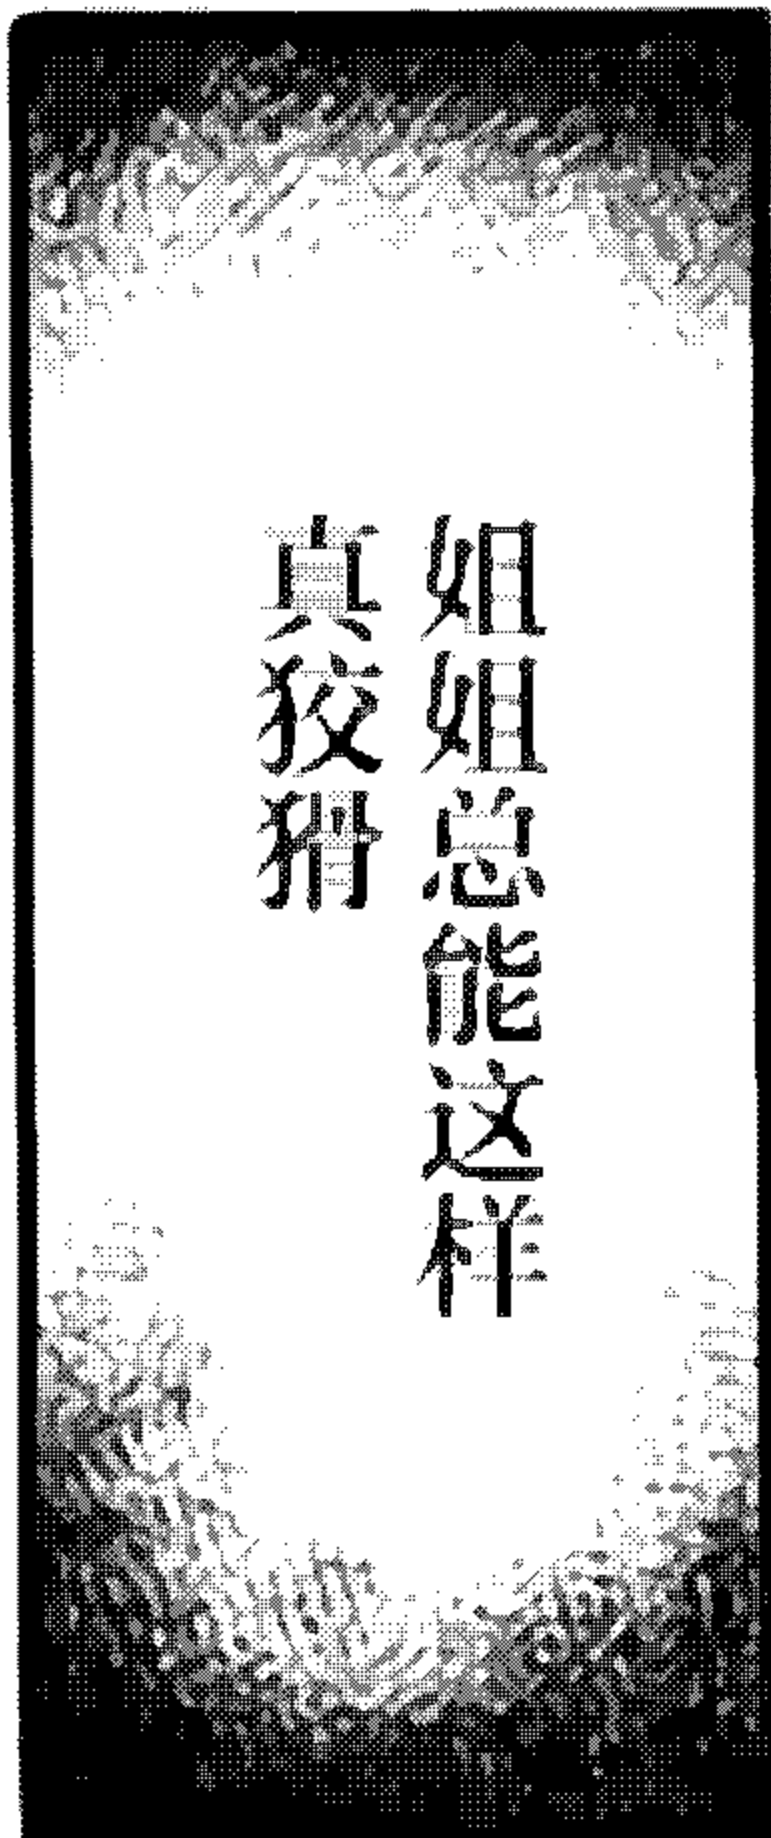 姐姐总能这样
真狡猾